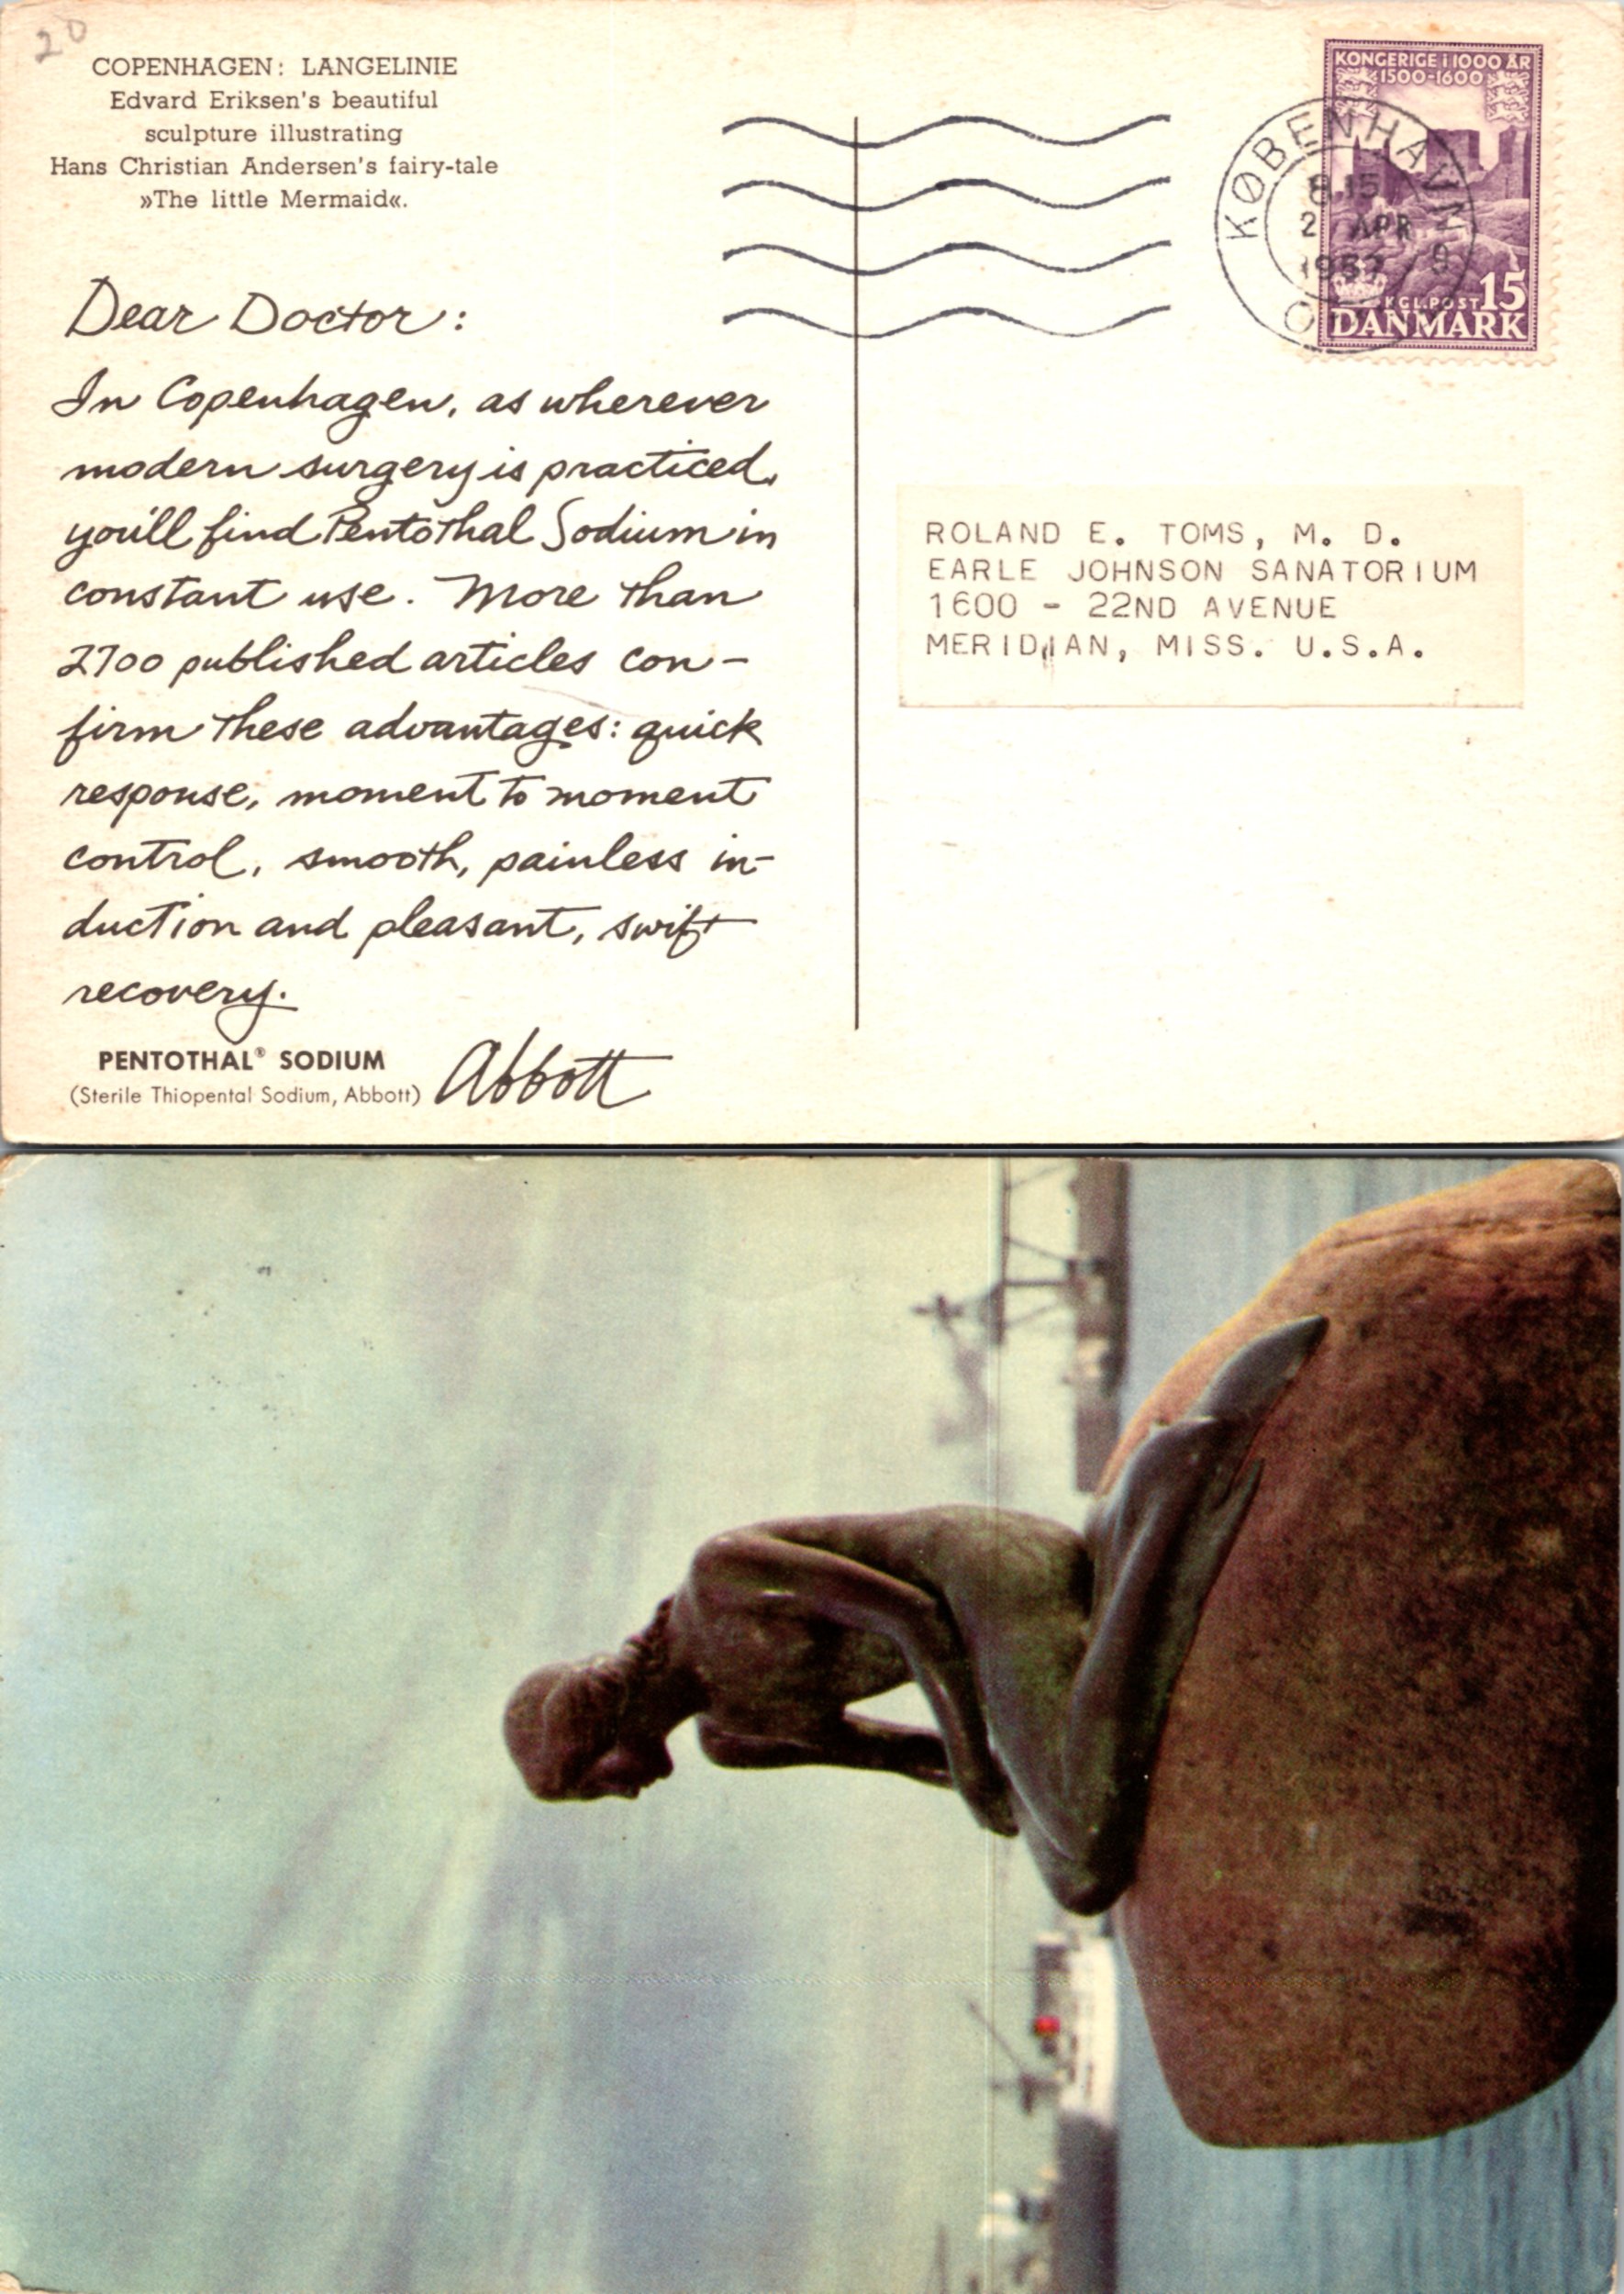 20
COPENHAGEN: LANGELINIE
Edvard Eriksen's beautiful
sculpture illustrating
Hans Christian Andersen's fairy-tale
»The little Mermaid«.
KONGERIGE i 1000 ÅR
1500-1600
KØBENHAVN
8.15
2 APR
1957
KGL.POST 15
DANMARK
Dear Doctor:
In Copenhagen, as wherever
modern surgery is practiced,
you'll find Pentothal Sodium in
constant use. More than
2700 published articles con-
firm these advantages: quick
response, moment to moment
control, smooth, painless in-
duction and pleasant, swift
recovery.
PENTOTHAL® SODIUM
(Sterile Thiopental Sodium, Abbott)
Abbott
ROLAND E. TOMS, M. D.
EARLE JOHNSON SANATORIUM
1600 - 22ND AVENUE
MERIDIAN, MISS. U.S.A.